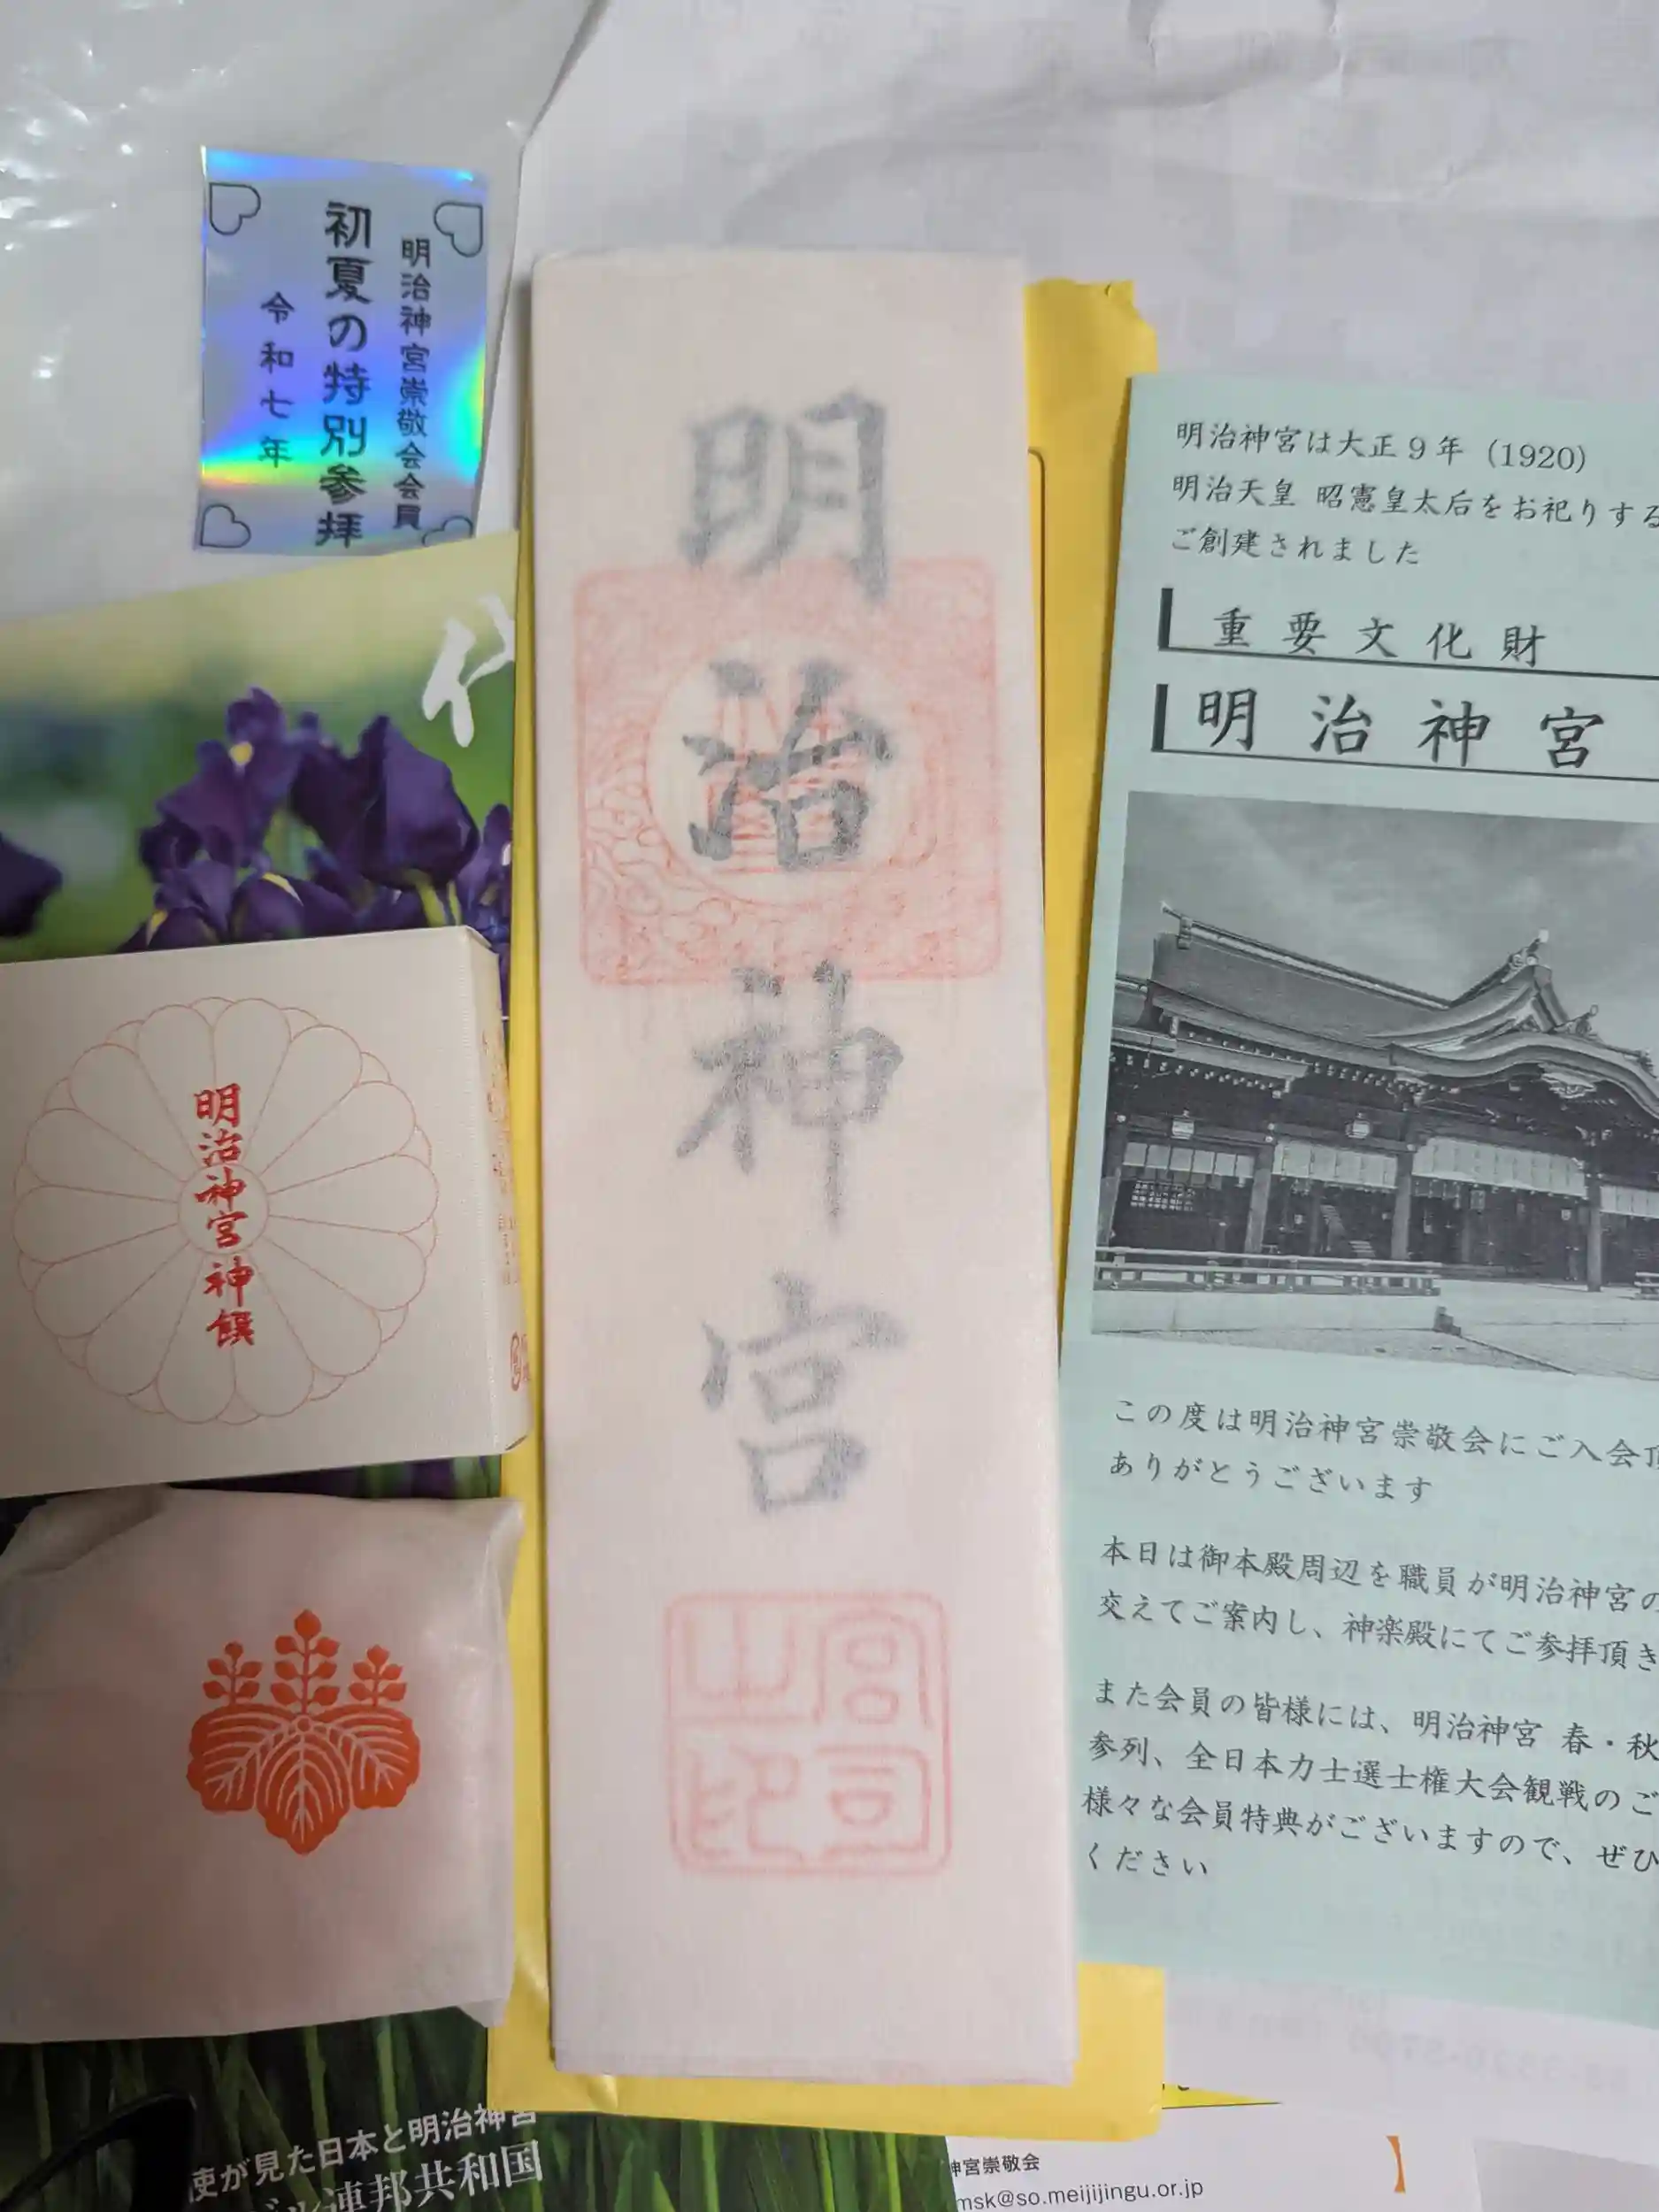 明治神宮崇敬会会員
初夏の特別参拝
令和七年
代
明治神宮
宮司之印
明治神宮神饌
明治神宮は大正9年（1920）
明治天皇 昭憲皇太后をお祀りする
ご創建されました
重要文化財
明治神宮
この度は明治神宮崇敬会にご入会頂
ありがとうございます
本日は御本殿周辺を職員が明治神宮の
交えてご案内し、神楽殿にてご参拝頂き
また会員の皆様には、明治神宮 春・秋
参列、全日本力士選士権大会観戦のご
様々な会員特典がございますので、ぜひ
ください
使が見た日本と明治神宮
連邦共和国
神宮崇敬会
msk@so.meijijingu.or.jp